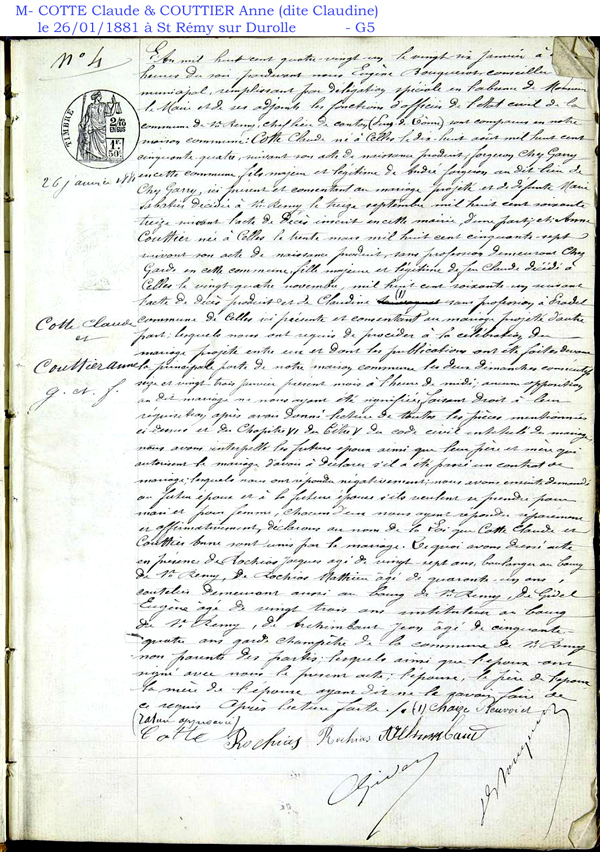 M- COTTE Claude & COUTTIER Anne (dite Claudine)
le 26/01/1881 à St Rémy sur Durolle - G5
N° 4
TIMBRE
26 janvier 1881
Cotte Claude
et
Couttier anne
g. et f.
L'An mil huit cent quatre vingt un, le vingt six janvier à
heures du soir pardevant nous Eugène conseiller
municipal, remplissant par délégation spéciale en l'absence de Monsieur
le Maire et de ses adjoints les fonctions d'officier de l'état civil de la
commune de St Remy, chef lieu de canton, (Puy de Dôme) sont comparus en notre
maison commune: Cotte Claude né à Celles le dix août mil huit cent
cinquante quatre, suivant son acte de naissance produit, forgeron Chez Garry
en cette commune, fils majeur et légitime de André forgeron au dit lieu de
Chez Garry, ici présent et consentant au mariage projeté et de défunte Marie
décédée à St Remy le treize septembre mil huit cent soixante
treize suivant l'acte de décès inscrit en cette mairie, d'une part; et Anne
Couttier née à Celles le trente mars mil huit cent cinquante sept
suivant son acte de naissance produit, sans profession demeurant Chez
en cette commune, fille majeure et légitime de feu Claude décédé à
Celles le vingt quatre novembre, mil huit cent soixante un suivant
l'acte de décès produit et de Claudine (1) sans profession, à
commune de Celles ici présente et consentant au mariage projeté d'autre
part; lesquels nous ont requis de procéder à la célébration du
mariage projeté entre eux et dont les publications ont été faites devant
la principale porte de notre maison commune les deux dimanches consécutifs
seize et vingt trois janvier présent mois à l'heure de midi; aucune opposition
au dit mariage ne nous ayant été signifiée, faisant droit à leur
réquisition, après avoir donné lecture de toutes les pièces mentionnées
ci dessus et du Chapitre VI du titre V du code civil intitulé du mariage,
nous avons interpellé les futurs époux ainsi que leur père et mère qui
autorisent le mariage d'avoir à déclarer s'il a été passé un contrat de
mariage; lesquels nous ont répondu négativement; nous avons ensuite demandé
au futur époux et à la future épouse s'ils veulent se prendre pour
mari et pour femme; chacun d'eux nous ayant répondu séparément
et affirmativement, déclarons au nom de la Loi que Cotte Claude et
Couttier Anne sont unis par le mariage. De quoi avons dressé acte
en présence de Rochias Jacques agé de vingt sept ans, boulanger au bourg
de St Remy, de Rochias Mathieu âgé de quarante un ans,
coutelier demeurant aussi au bourg de St Remy, de
Eugène âgé de vingt trois ans instituteur au bourg
de St Remy, de Archimbaut Jean âgé de cinquante
quatre ans garde champêtre de la commune de St Remy
non parents des parties; lesquels ainsi que l'époux ont
signé avec nous le présent acte; l'épouse, le père de l'époux
la mère de l'épouse ayant dit ne le savoir faire de
ce requis Après lecture faite. (1) Renvoi et
rature approuvés
Cotte Rochias Rochias